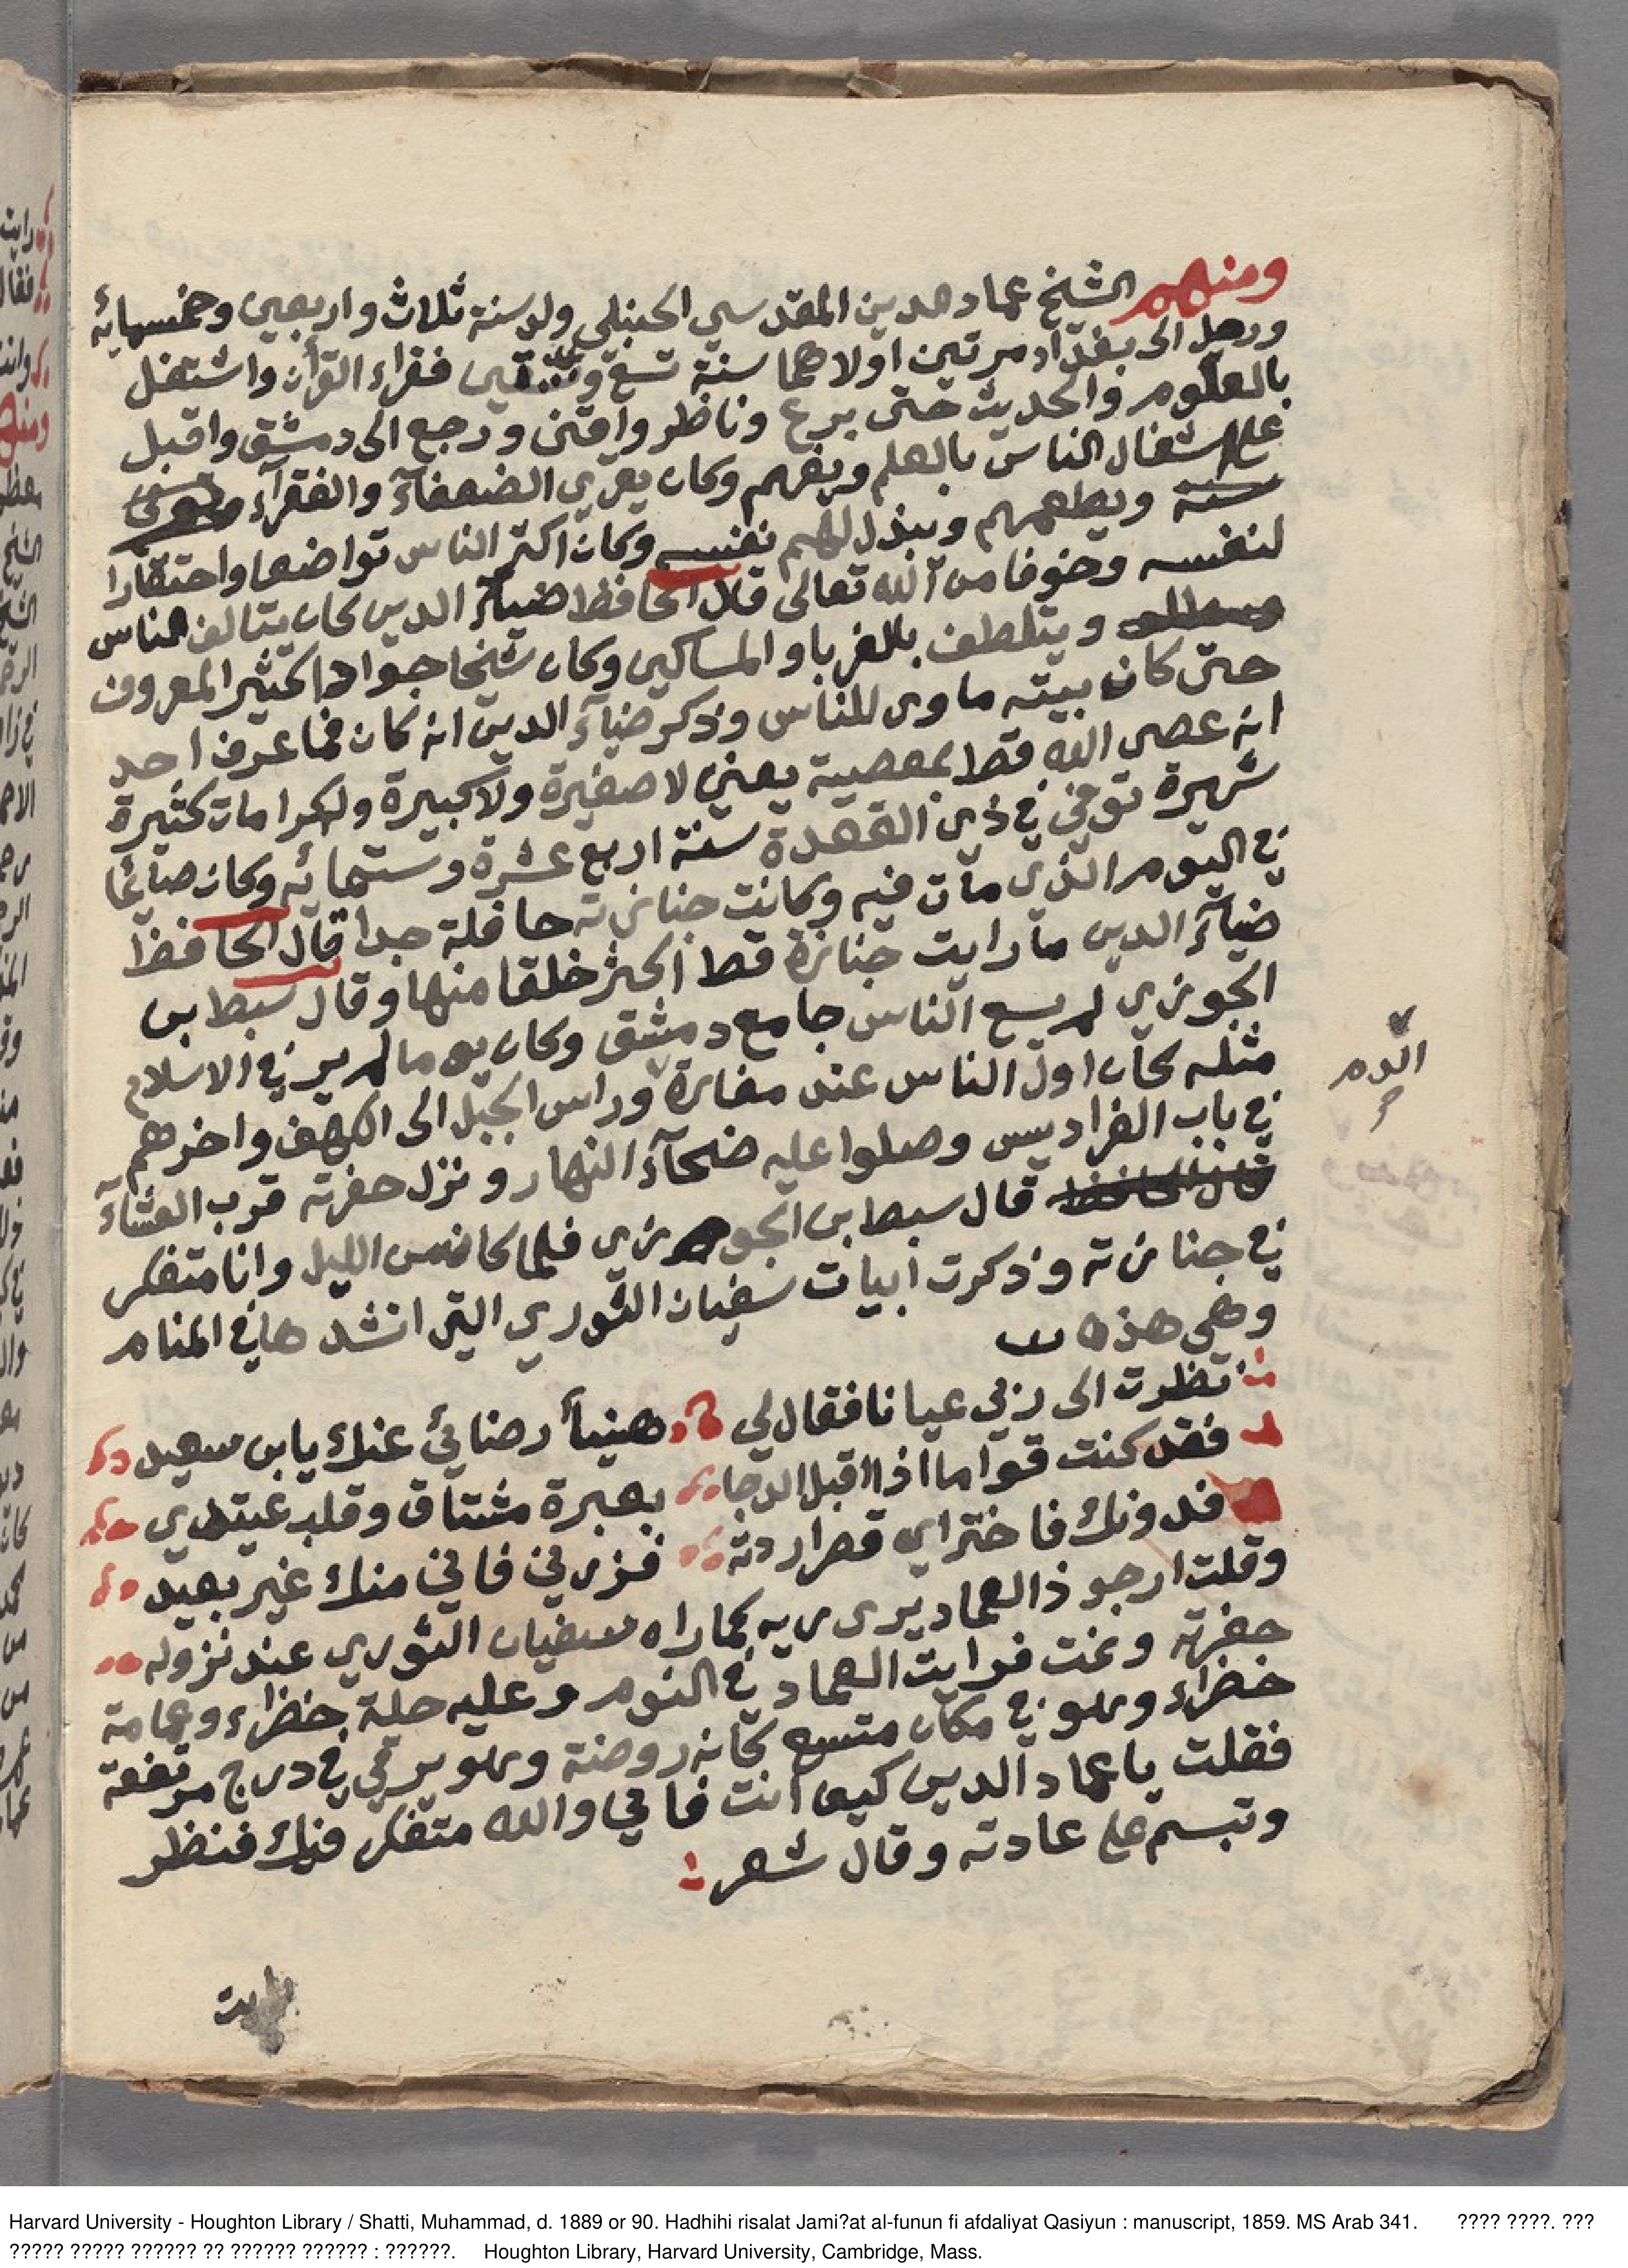 ومنهم الشيخ عماد الدين المقدسي الحنبلي ولد سنة ثلاث واربعين وخمسمائه
ورحل الى بغداد مرتين اولاهما سنة تسع وستين فقراء القرآن واشتغل
بالعلوم والحديث حتى برع وناظر وافتى ورجع الى دمشق واقبل
على اشغال الناس بالعلم وبفهم وكان يقري الضعفآء والفقرآء
ويطعمهم ويبذل لهم نفسه وكان اكثر الناس تواضعا واحتقارا
لنفسه وخوفا من الله تعالى قال الحافظ ضيآء الدين كان يتالف الناس
ويتلطف بالغربا والمساكين وكان شيخا جوادا كثير المعروف
حتى كان بيته ماوى للناس وذكر ضيآء الدين انه كان فما عرف احد
انه عصى الله قط بمعصية يعني لا صغيرة ولا كبيرة وله كرامات كثيرة
شهيرة توفي في ذي القعدة سنة اربع عشرة وستمائه وكان صائما
في اليوم الذي مات فيه وكانت جنازته حافلة جدا قال الحافظ
ضيآء الدين ما رايت جنازة قط اكثر خلقا منها وقال سبط بن
الجوزي لم يسع الناس جامع دمشق وكان يوما لم ير في الاسلام
مثله كان اول الناس عند مغارة وراس الجبل الى الكهف واخرهم
في باب الفراديس وصلوا عليه ضحآء النهار ونزل حفرته قرب العشآء
قال الحافظ قال سبط بن الجوزي فلما كان من الليل وانا متفكر
في جنازته وذكرت ابيات سفيان الثوري التي انشدها في المنام
وهي هذه
نظرت الى ربي عيانا فقال لي هنيأ رضائي عنك يابن سعيد
فقد كنت قواما اذا اقبل الدجا بعبرة مشتاق وقلب عيتدي
فدونك فاختر اي قصر اردته فزرني فاني منك غير بعيد
وقلت ارجو ذا العماد يرى ربه كما راه سفيان الثوري عند نزوله
حفرته ونمت فرايت العماد في النوم وعليه حلة خضراء وعمامة
خضراء وهو في مكان متسع كانه روضة وهو يرقي في درج مرتفعة
فقلت يا عماد الدين كيف انت فاني والله متفكر فيك فنظر
وتبسم على عادته وقال شعر
الدم